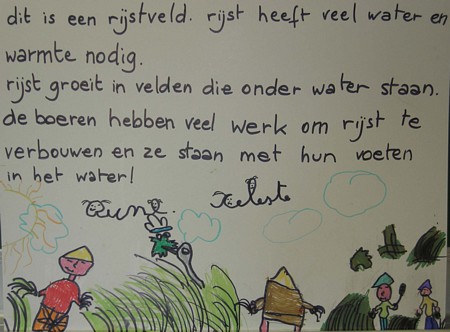 dit is een rijstveld. rijst heeft veel water en
warmte nodig.
rijst groeit in velden die onder water staan.
de boeren hebben veel werk om rijst te
verbouwen en ze staan met hun voeten
in het water!
Rune. Xeleste